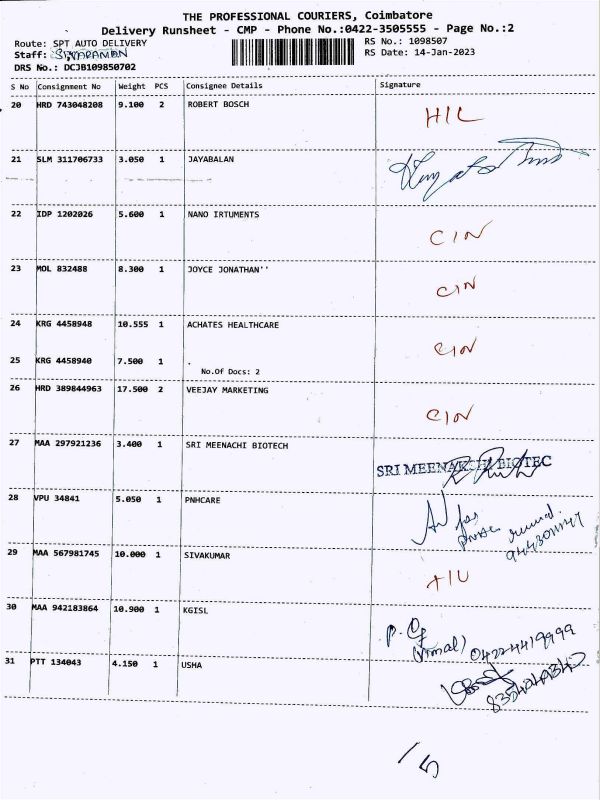 THE PROFESSIONAL COURIERS, Coimbatore
Delivery Runsheet - CMP - Phone No.:0422-3505555 - Page No.:2
Route: SPT AUTO DELIVERY RS No.: 1098507
Staff: SIVARAMAN RS Date: 14-Jan-2023
DRS No.: DCJB109850702
S No Consignment No Weight PCS Consignee Details Signature
20 HRD 743048208 9.100 2 ROBERT BOSCH H/L
21 SLM 311706733 3.050 1 JAYABALAN
22 IDP 1202026 5.600 1 NANO IRTUMENTS C/N
23 MOL 832488 8.300 1 JOYCE JONATHAN'' C/N
24 KRG 4458948 10.555 1 ACHATES HEALTHCARE C/N
25 KRG 4458940 7.500 1 .
No.Of Docs: 2
26 HRD 389844963 17.500 2 VEEJAY MARKETING C/N
27 MAA 297921236 3.400 1 SRI MEENACHI BIOTECH SRI MEENAKCHI BIOTEC
28 VPU 34841 5.050 1 PNHCARE
29 MAA 567981745 10.000 1 SIVAKUMAR
30 MAA 942183864 10.900 1 KGISL
(Vimal) 04224419999
31 PTT 134043 4.150 1 USHA